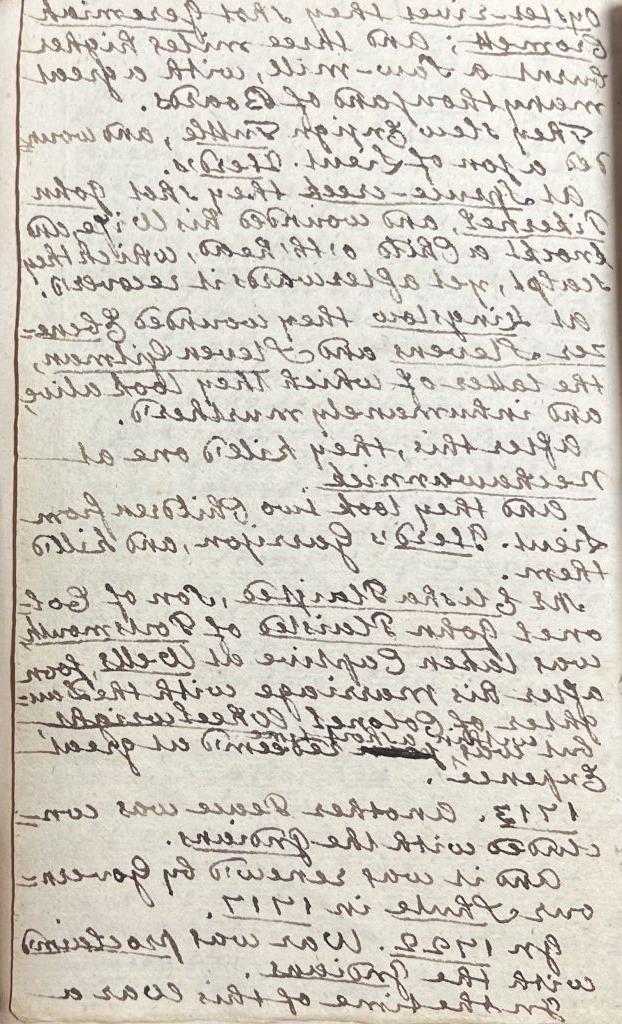 Oyster-River they shot Jeremiah
Cromett; and three miles higher
burnt a Saw-mill, with a great
many thousand of Boards.
They slew Ensign Tuttle, and woun-
ded a son of Lieut. Herd's.
at Spruce-creek they shot John
Pickernel, and wounded his Wife and
knockt a Child o'th'head, which they
scalpt, yet afterwards it recover'd.
at Kingstow they wounded Ebene-
zer Stevens and Steven Gilman,
the latter of which they took alive,
and inhumanely murther'd.
after this, they kill'd one at
Neckewannick.
and they took two Children from
Lieut. Herd's Garrison, and kill'd
them.
Mr Elisha Plaisted, son of Col-
onel John Plaisted of Portsmouth,
was taken Captive at Wells, soon
after his marriage with the Dau-
ghter of Colonel Wheelwright
but was redeem'd at great
Expence.
1713. another Peace was con-
cluded with the Indians.
and it was renew'd by Govern-
our Shute in 1717.
In 1722. War was proclaim'd
with the Indians.
In the time of this War a